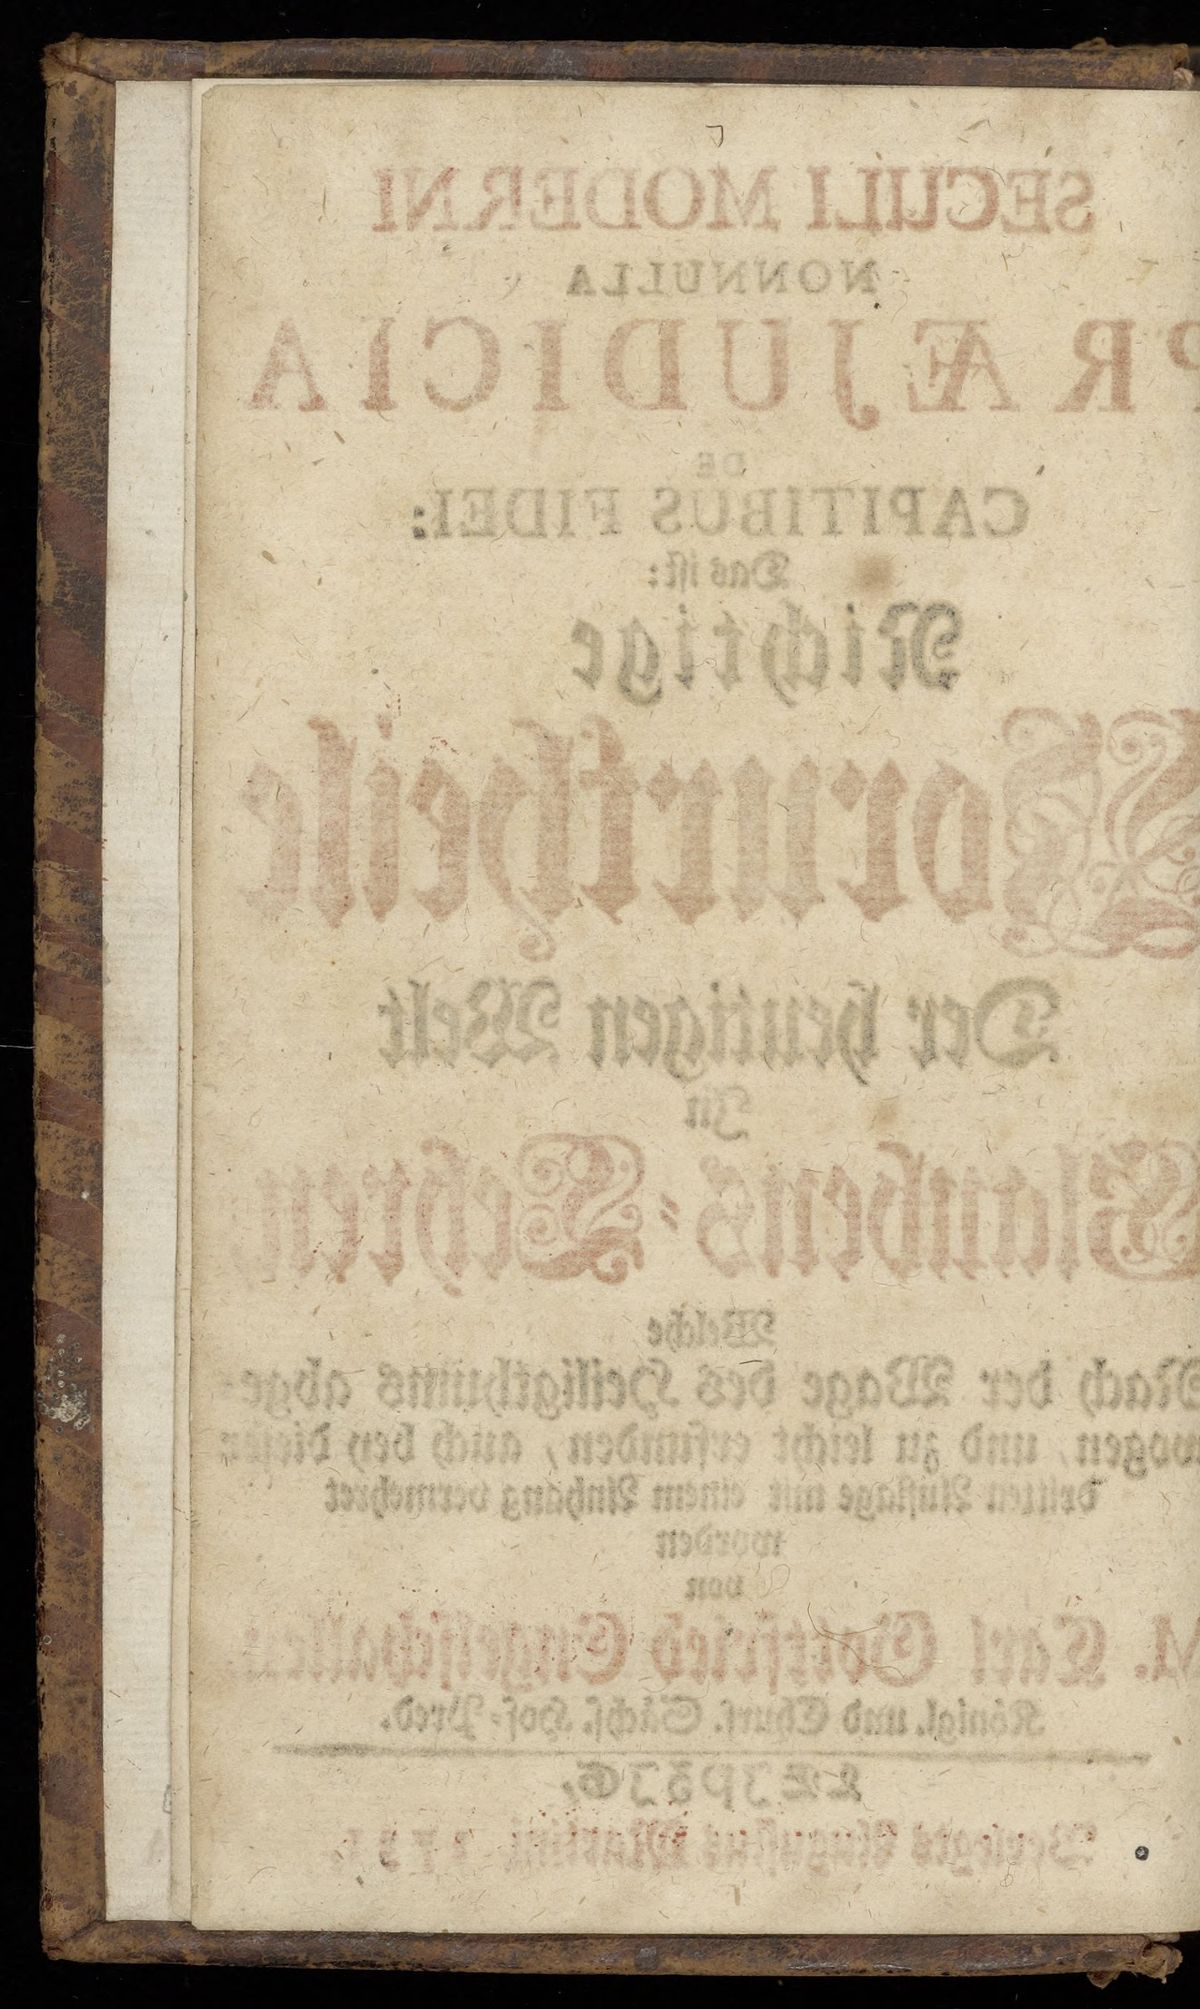 SECULI MODERNI
NONNULLA
PRÆJUDICIA
DE
CAPITIBUS FIDEI:
Das ist:
Nichtige
Vorurtheile
Der heutigen Welt
In
Glaubens-Lehren,
Welche
Nach der Wage des Heiligthums abge-
wogen, und zu leicht erfunden, auch bey dieser
dritten Auflage mit einem Anhang vermehret
worden
von
M. Carl Gottfried Engelschallen,
Königl. und Churf. Sächs. Hof-Pred.
LEJPZJG,
Verlegts Augustus Martini